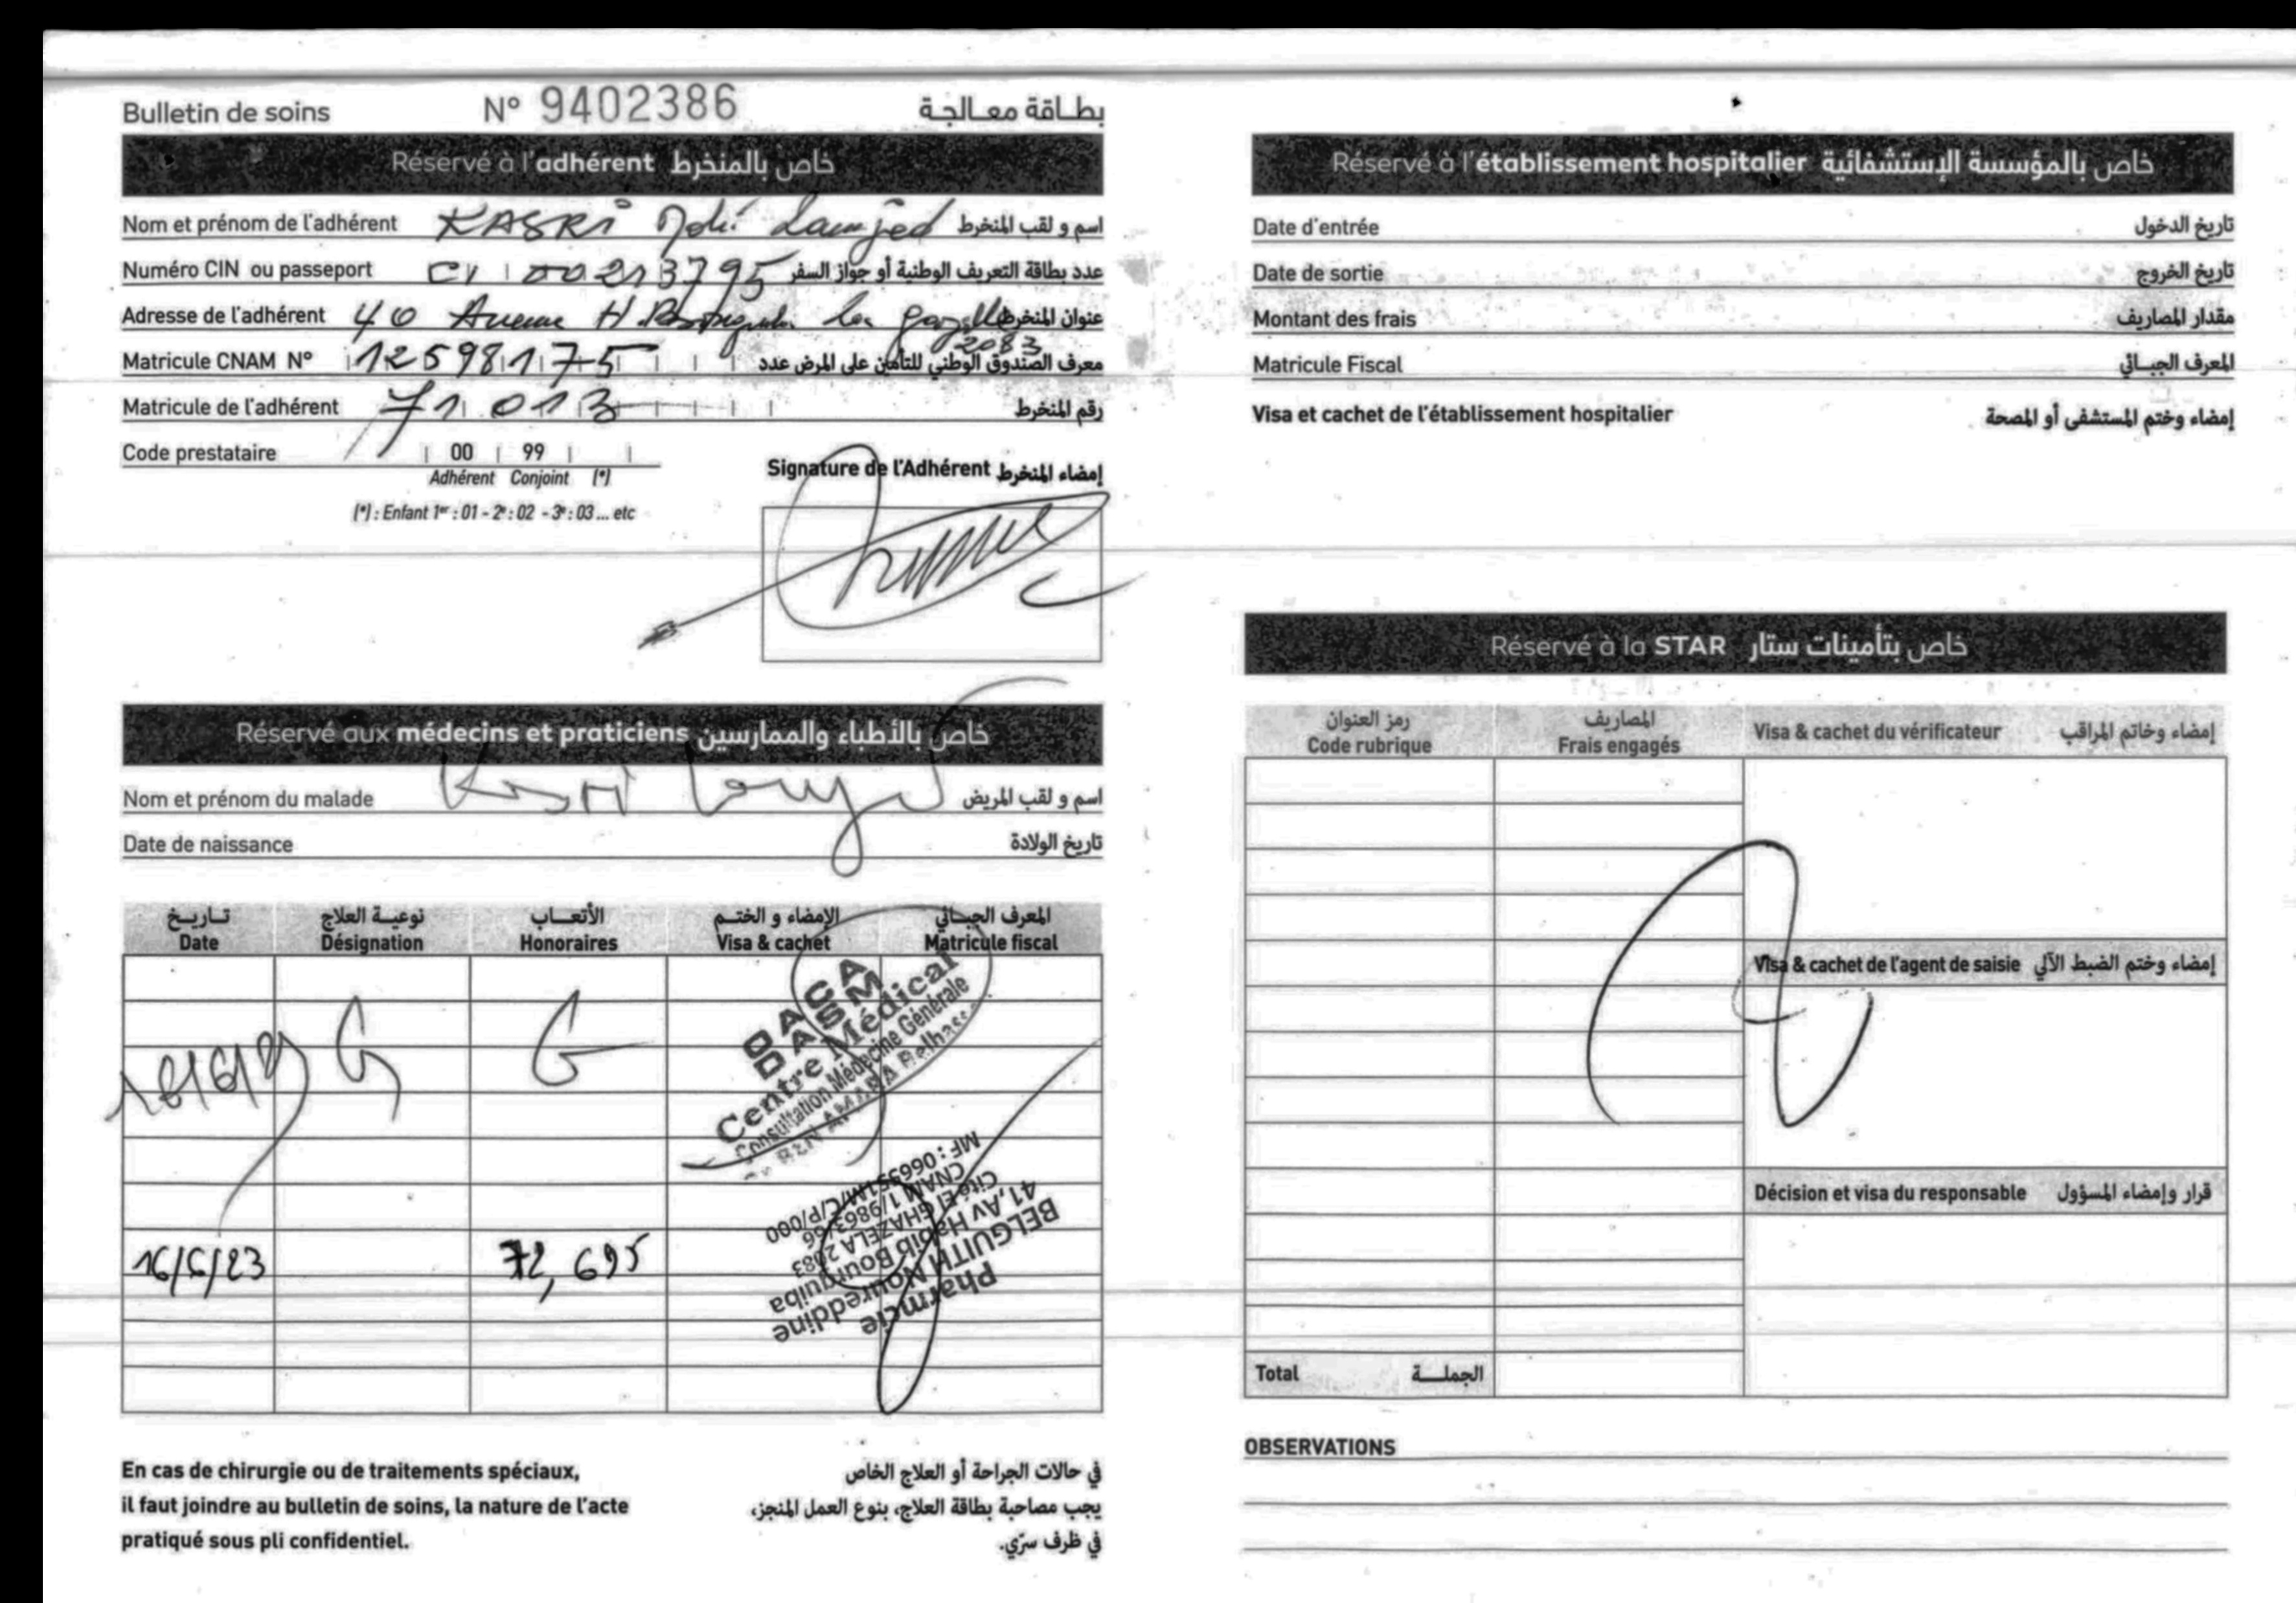 Bulletin de soins N° 9402386 بطاقة معالجة
Réservé à l'adhérent خاص بالمنخرط
Nom et prénom de l'adhérent KASRI Lamjed اسم و لقب المنخرط
Numéro CIN ou passeport CI 00213795 عدد بطاقة التعريف الوطنية أو جواز السفر
Adresse de l'adhérent 40 Avenue H. Bourguiba la gazelle عنوان المنخرط
2083
Matricule CNAM N° 125981175 معرف الصندوق الوطني للتأمين على المرض عدد
Matricule de l'adhérent 71013 رقم المنخرط
Code prestataire 00 99
Adhérent Conjoint (*)
(*) : Enfant 1er : 01 - 2e : 02 - 3e : 03 ... etc
Signature de l'Adhérent إمضاء المنخرط
Réservé aux médecins et praticiens خاص بالأطباء والممارسين
Nom et prénom du malade Kasri Lamjed اسم و لقب المريض
Date de naissance تاريخ الولادة
تاريخ نوعية العلاج الأتعاب الإمضاء و الختم المعرف الجبائي
Date Désignation Honoraires Visa & cachet Matricule fiscal
OACA
DASM
Centre Médical
Consultation Médecine Générale
BEN AMARA Belhass
16/6/23 72,695
Pharmacie
BELGUITH Noureddine
41, Av Habib Bourguiba
Cité El GHAZELA 2083
CNAM 1/9863/66
MF : 066551M/C/P/000
En cas de chirurgie ou de traitements spéciaux,
il faut joindre au bulletin de soins, la nature de l'acte
pratiqué sous pli confidentiel.
في حالات الجراحة أو العلاج الخاص
يجب مصاحبة بطاقة العلاج، بنوع العمل المنجز،
في ظرف سرّي.
Réservé à l'établissement hospitalier خاص بالمؤسسة الإستشفائية
Date d'entrée تاريخ الدخول
Date de sortie تاريخ الخروج
Montant des frais مقدار المصاريف
Matricule Fiscal المعرف الجبائي
Visa et cachet de l'établissement hospitalier إمضاء وختم المستشفى أو المصحة
Réservé à la STAR خاص بتأمينات ستار
رمز العنوان المصاريف
Code rubrique Frais engagés Visa & cachet du vérificateur إمضاء وخاتم المراقب
Visa & cachet de l'agent de saisie إمضاء وختم الضبط الآلي
Décision et visa du responsable قرار وإمضاء المسؤول
Total الجملة
OBSERVATIONS